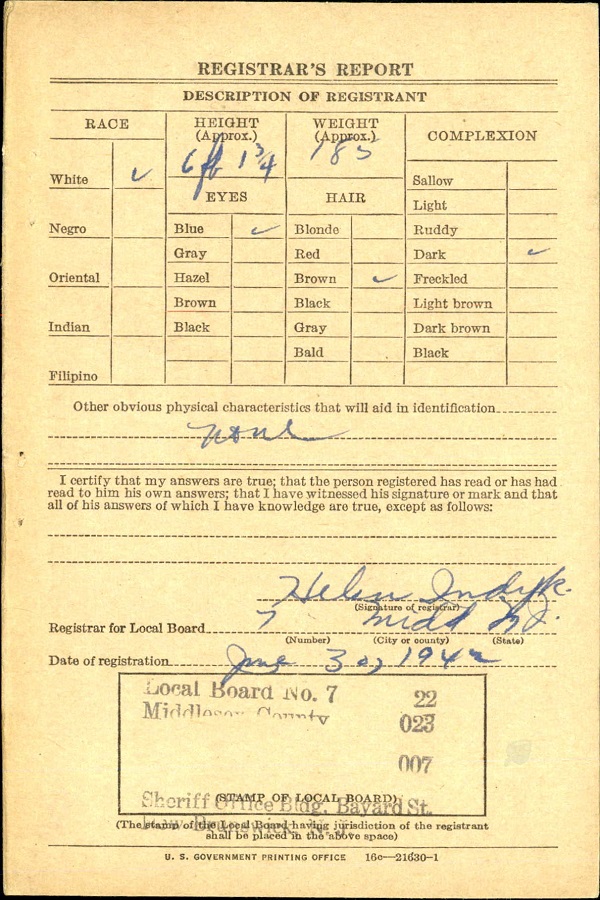 REGISTRAR'S REPORT
DESCRIPTION OF REGISTRANT
RACE
HEIGHT
(Approx.)
WEIGHT
(Approx.)
COMPLEXION
6 ft 1 3/4
185
White ✓
Sallow
EYES
HAIR
Light
Negro
Blue ✓
Blonde
Ruddy
Gray
Red
Dark ✓
Oriental
Hazel
Brown ✓
Freckled
Brown
Black
Light brown
Indian
Black
Gray
Dark brown
Bald
Black
Filipino
Other obvious physical characteristics that will aid in identification
None
I certify that my answers are true; that the person registered has read or has had
read to him his own answers; that I have witnessed his signature or mark and that
all of his answers of which I have knowledge are true, except as follows:
Helen Indyk.
(Signature of registrar)
Registrar for Local Board 7 Midd N.J.
(Number) (City or county) (State)
Date of registration June 30, 1942
Local Board No. 7 22
Middlesex County 023
007
(STAMP OF LOCAL BOARD)
Sheriff Office Bldg. Bayard St.
New Brunswick, N. J.
(The stamp of the Local Board having jurisdiction of the registrant
shall be placed in the above space)
U. S. GOVERNMENT PRINTING OFFICE 16c—21630-1